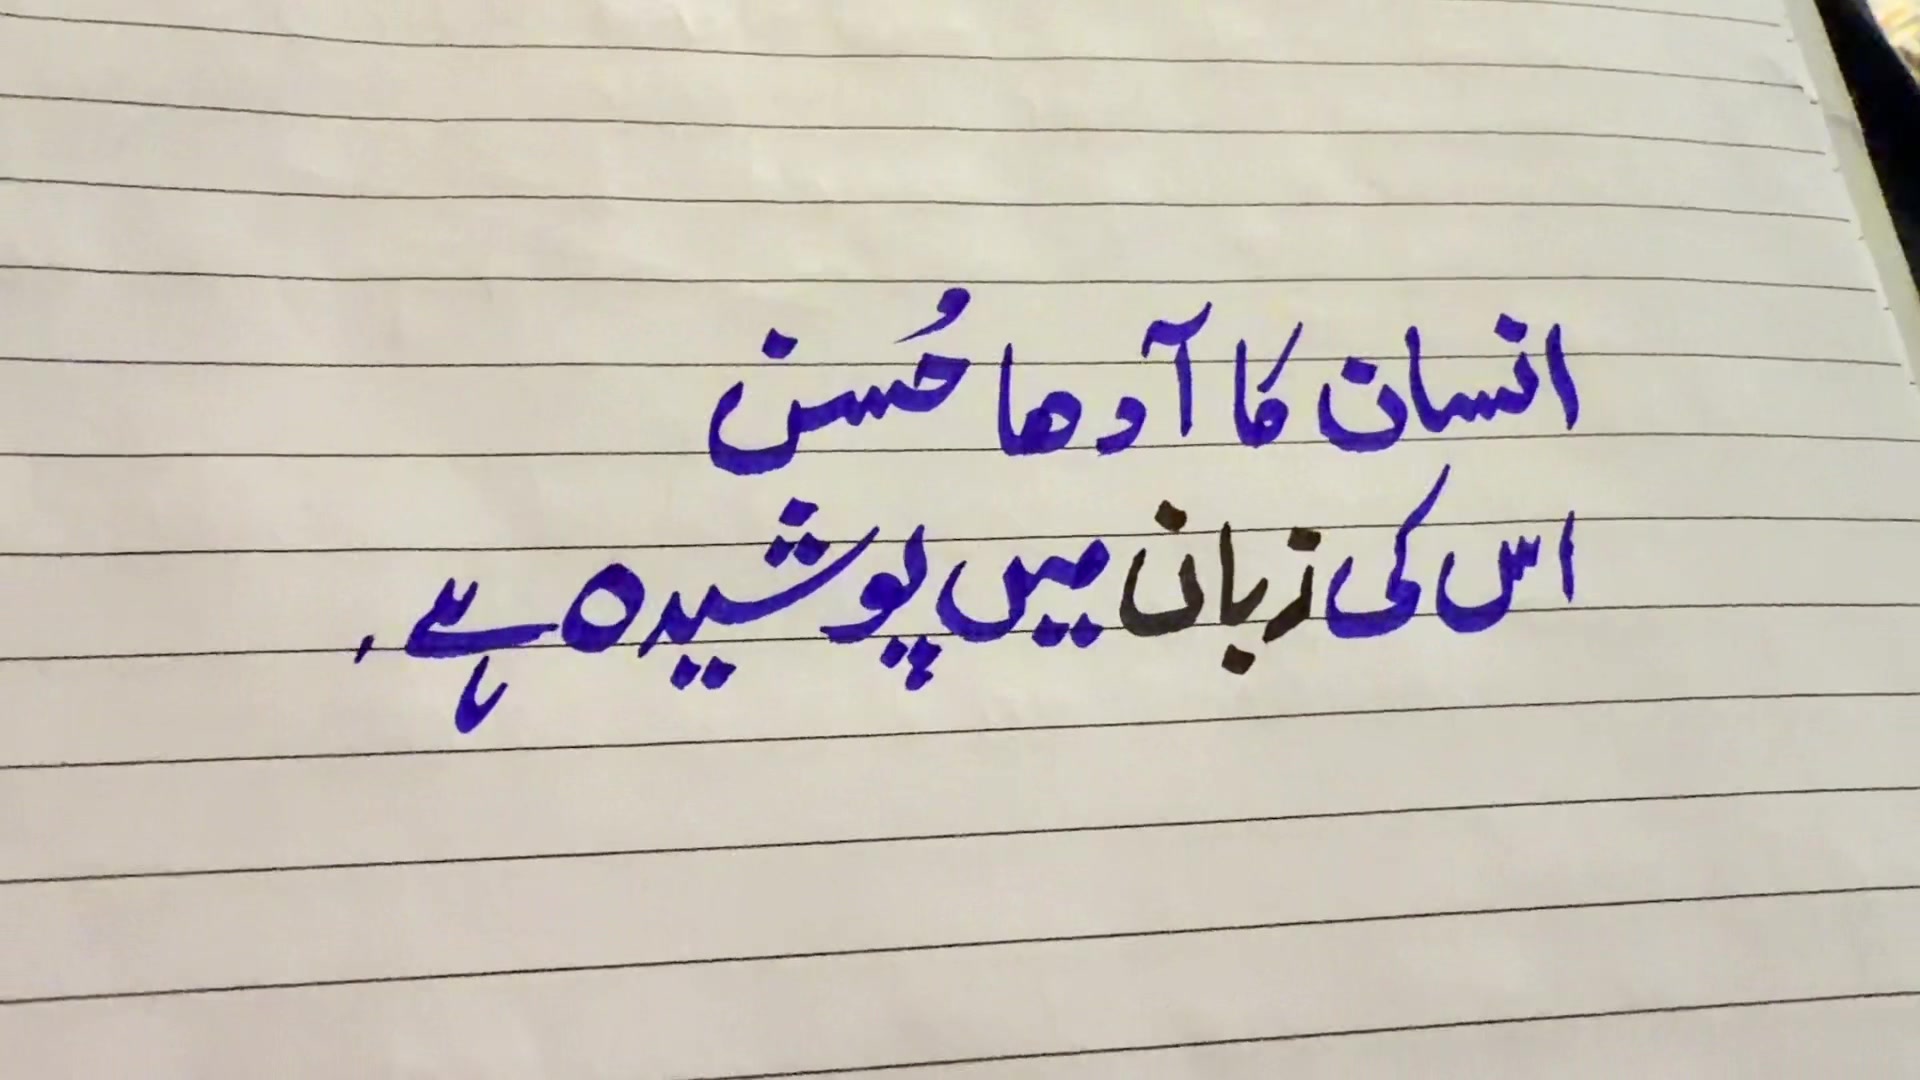 انسان کا آدھا حُسن
اس کی زبان میں پوشیدہ ہے۔